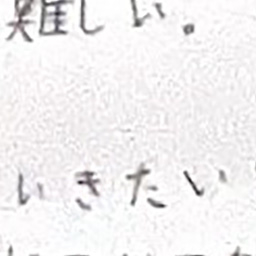 難しい。
いきたい